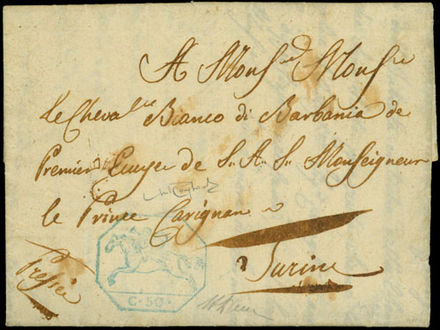 A Mons.r Mons.r
Le Cheval.er Bianco di Barbania
Premier Ecuyer de S. A. S. Monseigneur
le Prince Carignan
Turin
Pressée
C. 50.